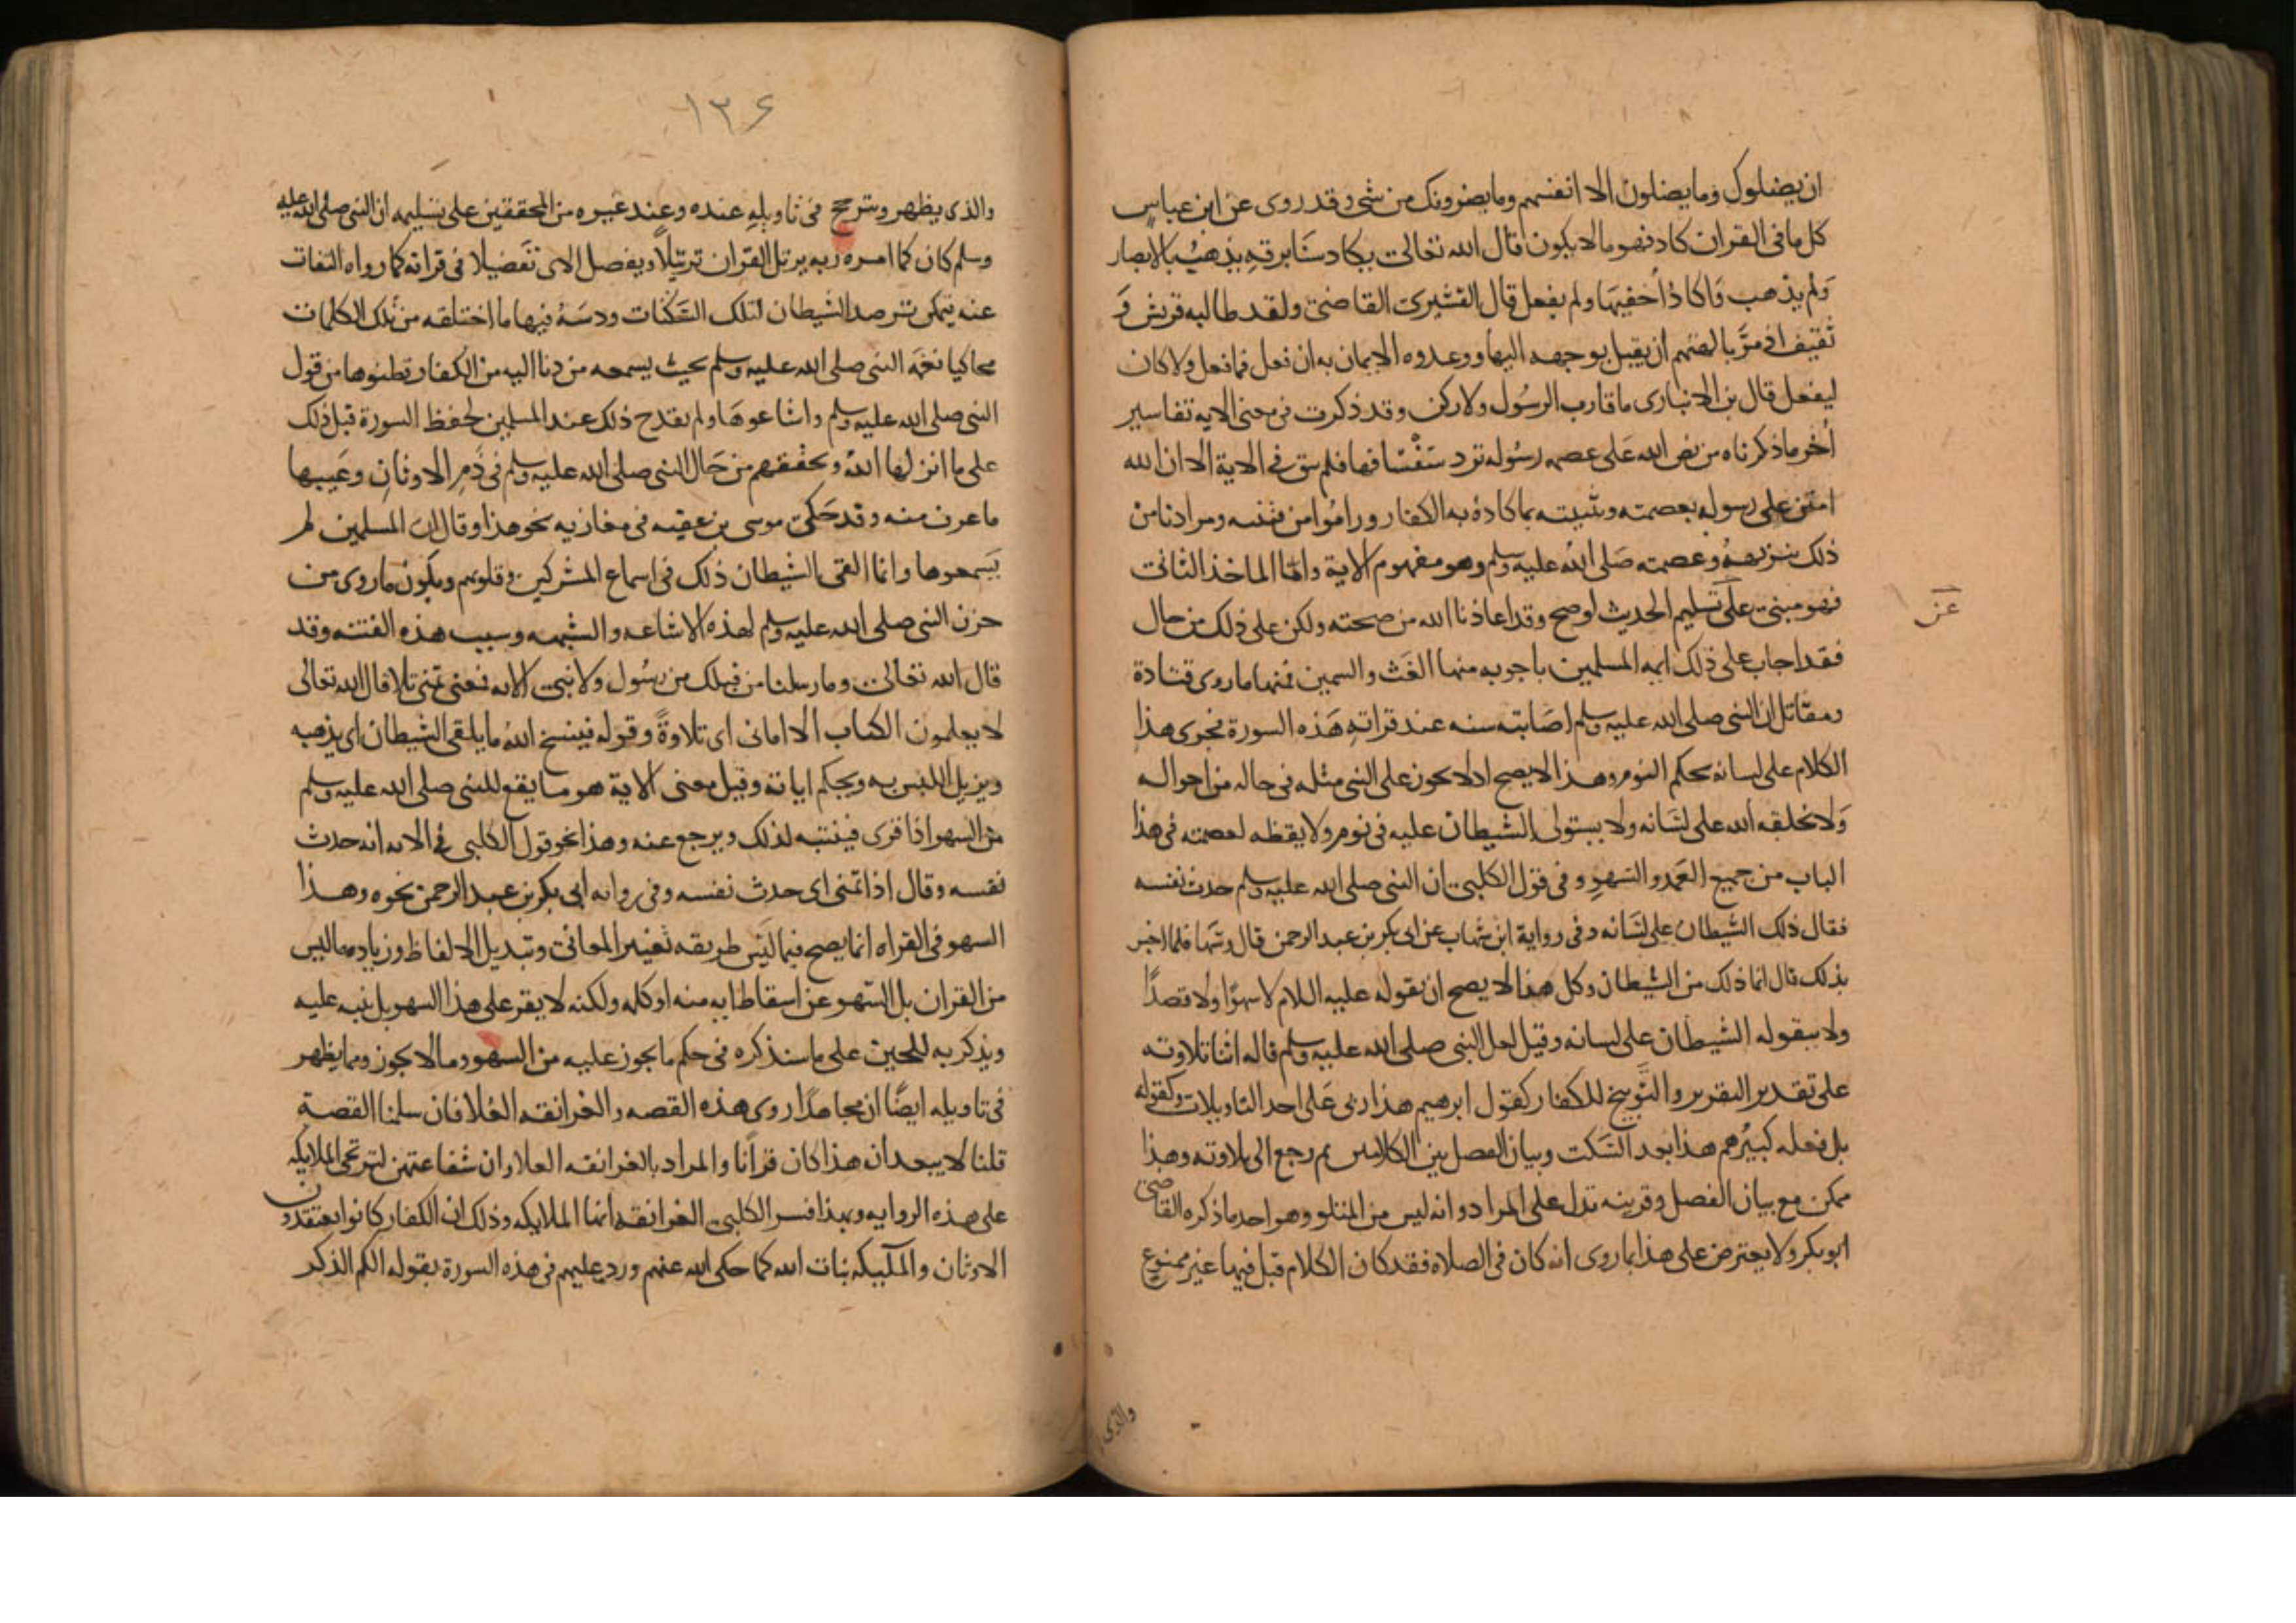 ان يضلوك وما يضلون الا انفسهم وما يضرونك من شى وقد روى عن ابن عباس
كل ما فى القران كاد فهو ما لا يكون قال الله تعالى يكاد سنا برقه يذهب بالابصار
ولم يذهب واكاد اخفيها ولم يفعل قال القشيرى القاضى ولقد طالبه قريش و
ثقيف اذ مر بالهتهم ان يقبل بوجهه اليها ووعدوه الايمان به ان فعل فما فعل ولا كان
ليفعل قال بن الانبارى ما قارب الرسول ولا ركن وقد ذكرت فى معنى الايه تفاسير
اخر ما ذكرناه من نص الله على عصمه رسوله ترد سفسافها فلم يبق فى الاية الا ان الله
امتن على رسوله بعصمته وتثبيته بما كاده به الكفار وراموا من فتنته ومرادنا من
ذلك تنزيهه وعصمته صلى الله عليه وسلم وهو مفهوم الاية واما الماخذ الثانى
فهو مبنى على تسليم الحديث لو صح وقد اعاذنا الله من صحته ولكن على ذلك من حال
عن
فقد اجاب على ذلك ايمه المسلمين باجوبه منها الغث والسمين فمنها ما روى قتادة
ومقاتل ان النبى صلى الله عليه وسلم اصابته سنه عند قراته هذه السورة فجرى هذا
الكلام على لسانه بحكم النوم وهذا لا يصح اذ لا يجوز على النبى مثله فى حاله من احواله
ولا يخلقه الله على لسانه ولا يستولى الشيطان عليه فى نوم ولا يقظه لعصمته فى هذا
الباب من جميع العمد والسهو وفى قول الكلبى ان النبى صلى الله عليه وسلم حدث نفسه
فقال ذلك الشيطان على لسانه وفى رواية ابن شهاب عن ابى بكر بن عبد الرحمن قال وسها فلما اخبر
بذلك قال انما ذلك من الشيطان وكل هذا لا يصح ان يقوله عليه اللام لا سهوا ولا قصدا
ولا يتقوله الشيطان على لسانه وقيل لعل النبى صلى الله عليه وسلم قاله اثنا تلاوته
على تقدير التقرير والتوبيخ للكفار كقول ابرهيم هذا ربى على احد التاويلات وكقوله
بل فعله كبيرهم هذا بعد السكت وبيان الفصل بين الكلامين ثم رجع الى تلاوته وهذا
ممكن مع بيان الفصل وقرينه تدل على المراد وانه ليس من المتلو وهو احد ما ذكره القاضى
ابو بكر ولا يعترض على هذا بما روى انه كان فى الصلاه فقد كان الكلام قبل فيها غير ممنوع
والذى
١٣٦
والذى يظهر ويترجح فى تاويله عنده وعند غيره من المحققين على تسليمه ان النبى صلى الله عليه
وسلم كان كما امره ربه يرتل القران ترتيلا ويفصل الاى تفضيلا فى قراته كما رواه الثقات
عنه فيمكن ترصد الشيطان لتلك السكتات ودسه فيها ما اختلقه من تلك الكلمات
محاكيا نغمه النبى صلى الله عليه وسلم بحيث يسمعه من دنا اليه من الكفار فظنوها من قول
النبى صلى الله عليه وسلم واشاعوها ولم يقدح ذلك عند المسلمين لحفظ السورة قبل ذلك
على ما انزلها الله وتحققهم من حال النبى صلى الله عليه وسلم فى ذم الاوثان وعيبها
ما عرف منه وقد حكى موسى بن عقبه فى مغازيه نحو هذا وقال ان المسلمين لم
يسمعوها وانما القى الشيطان ذلك فى اسماع المشركين وقلوبهم ويكون ما روى من
حزن النبى صلى الله عليه وسلم لهذه الاشاعه والشبهه وسبب هذه الفتنه وقد
قال الله تعالى وما رسلنا من قبلك من رسول ولا نبى الايه فمعنى تمنى تلا قال الله تعالى
لا يعلمون الكتاب الا امانى اى تلاوة وقوله فينسخ الله ما يلقى الشيطان اى يذهبه
ويزيل اللبس به ويحكم اياته وقيل معنى الاية هو ما يقع للنبى صلى الله عليه وسلم
من السهو اذا قرى فينتبه لذلك ويرجع عنه وهذا نحو قول الكلبى فى الايه انه حدث
نفسه وقال اذا تمنى اى حدث نفسه وفى روايه ابى بكر بن عبد الرحمن نحوه وهذا
السهو فى القراه انما يصح فيما ليس طريقه تغيير المعانى وتبديل الالفاظ وزياده ما ليس
من القران بل السهو عن اسقاط ايه منه او كله ولكنه لا يقر على هذا السهو بل ينبه عليه
ويذكر به للحين على ما سنذكره فى حكم ما يجوز عليه من السهو وما لا يجوز ومما يظهر
فى تاويله ايضا ان مجاهدا روى هذه القصه والغرانقه العلا فان سلمنا القصة
قلنا لا يبعد ان هذا كان قرانا والمراد بالغرانقه العلا وان شفاعتهن لترتجى الملايكه
على هذه الروايه وبهذا فسر الكلبى الغرانقه انها الملايكه وذلك ان الكفار كانوا يعتقدون
الاوثان والملايكه بنات الله كما حكى الله عنهم ورد عليهم فى هذه السورة بقوله الكم الذكر